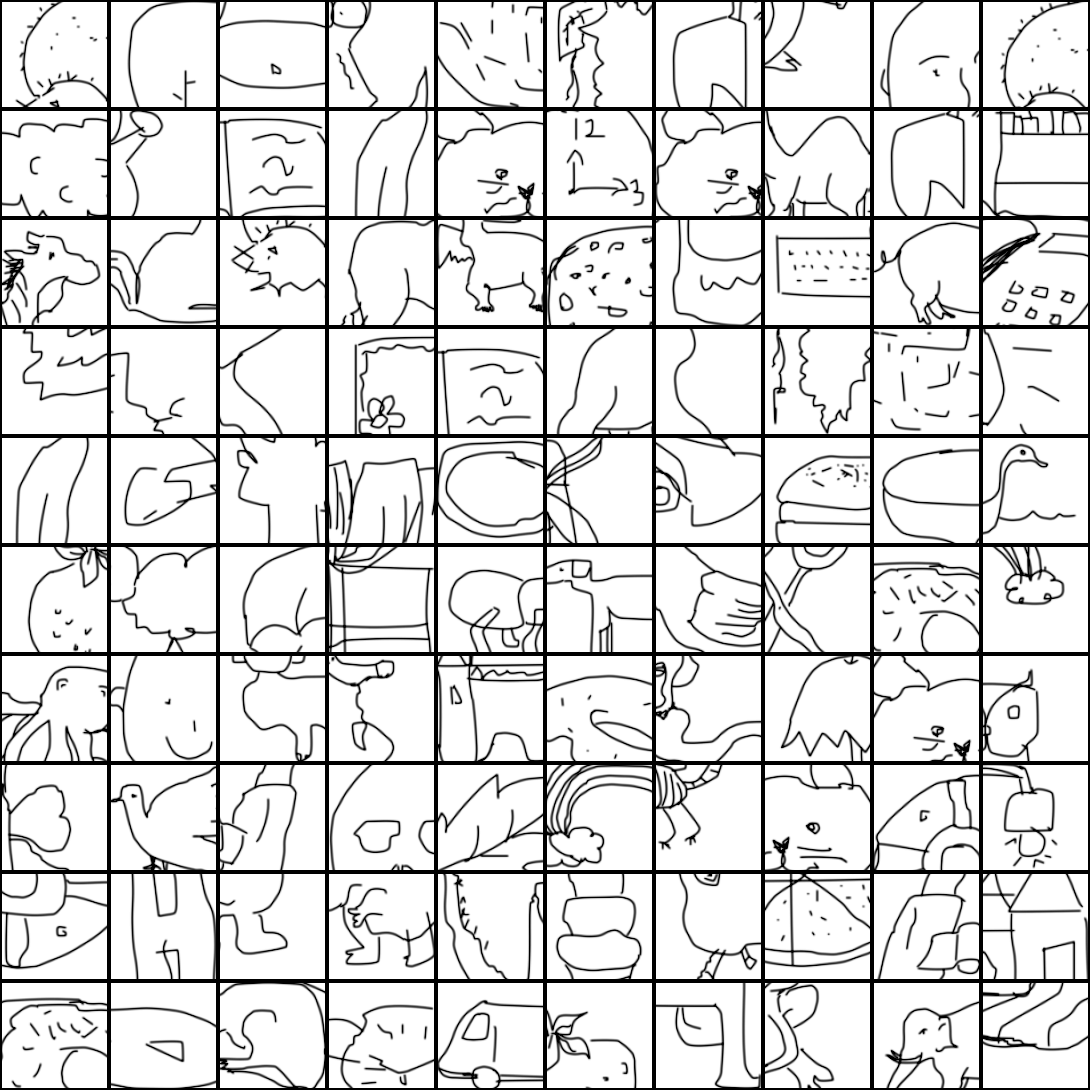 12
3